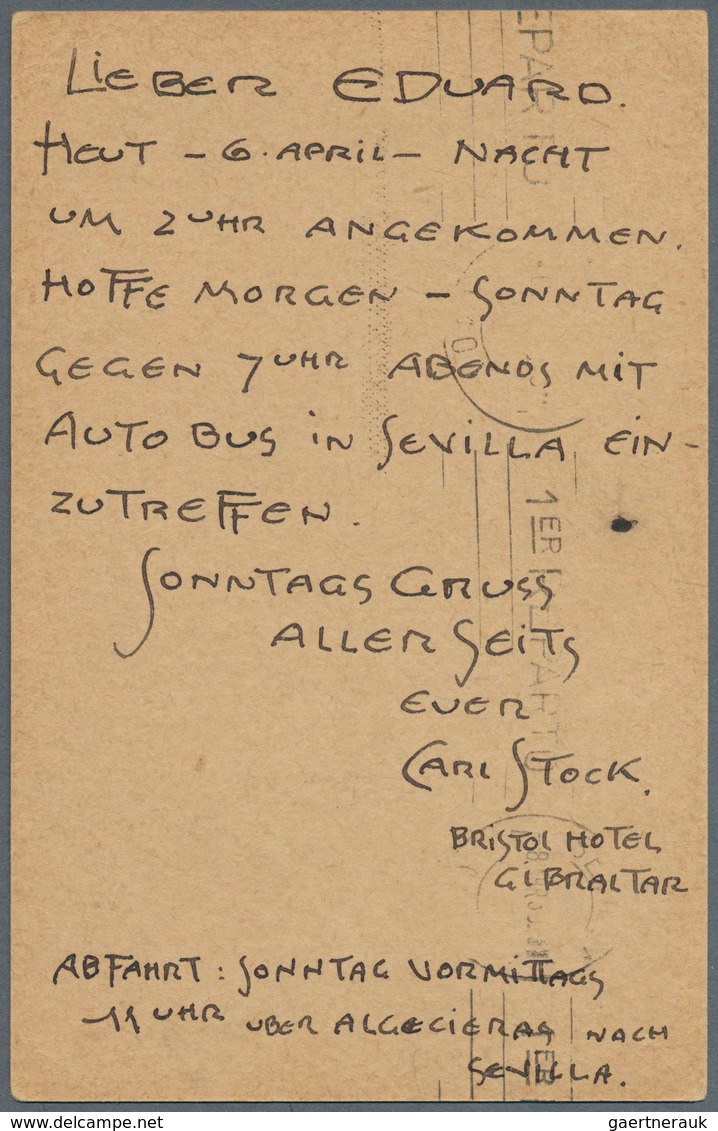 LIEBER EDUARD.
HEUT – 6. APRIL – NACHT
UM 2 UHR ANGEKOMMEN.
HOFFE MORGEN – SONNTAG
GEGEN 7 UHR ABENDS MIT
AUTO BUS IN SEVILLA EIN-
ZUTREFFEN.
SONNTAGS GRUSS
ALLER SEITS
EUER
CARL STOCK.
BRISTOL HOTEL
GIBRALTAR
ABFAHRT: SONNTAG VORMITTAGS
11 UHR UBER ALGECIERAS NACH
SEVILLA.
EPARTO
1ER REPARTO
1ER
delcampe.net
gaertnerauk